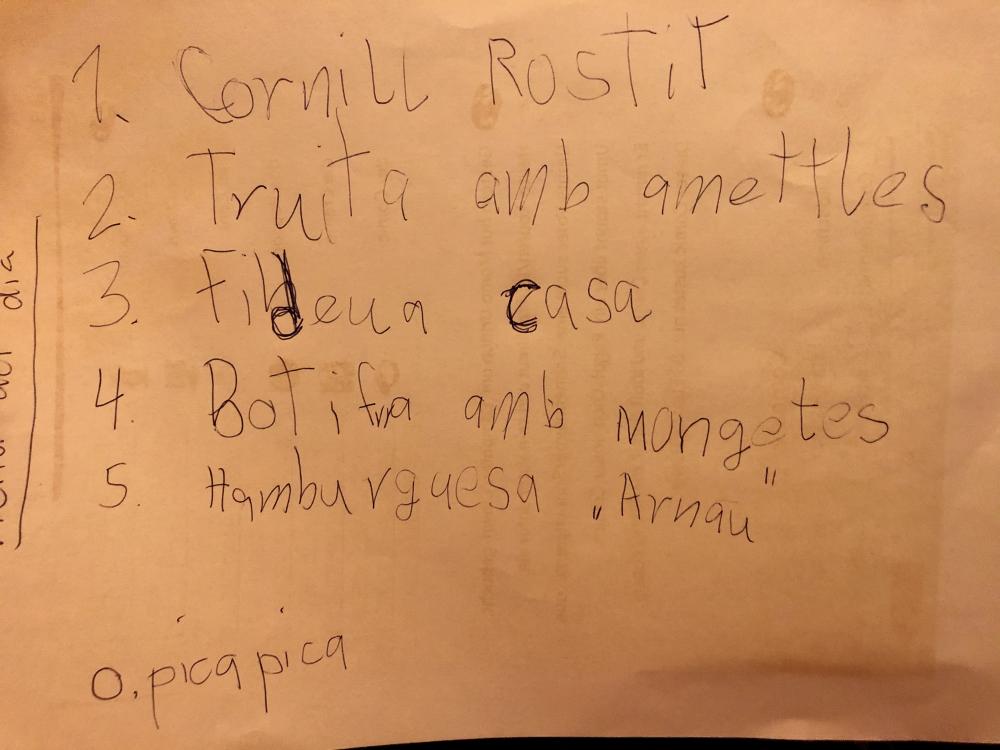 1. Cornill Rostit
2. Truita amb amettles
3. Fideua casa
4. Botifra amb mongetes
5. Hamburguesa „Arnau"
0. pica pica
dia